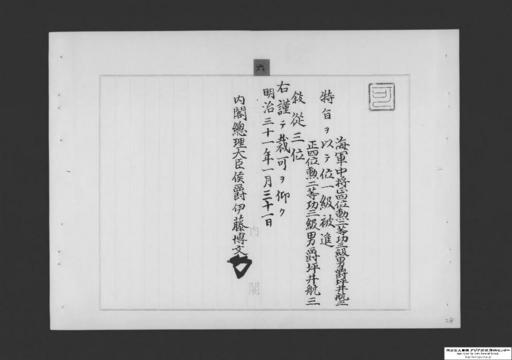 六
可
海軍中将正四位勲二等功三級男爵坪井航三
特旨ヲ以テ位一級被進
正四位勲二等功三級男爵坪井航三
敍従三位
右謹テ裁可ヲ仰ク
明治三十一年一月三十一日
内閣總理大臣侯爵伊藤博文
内閣